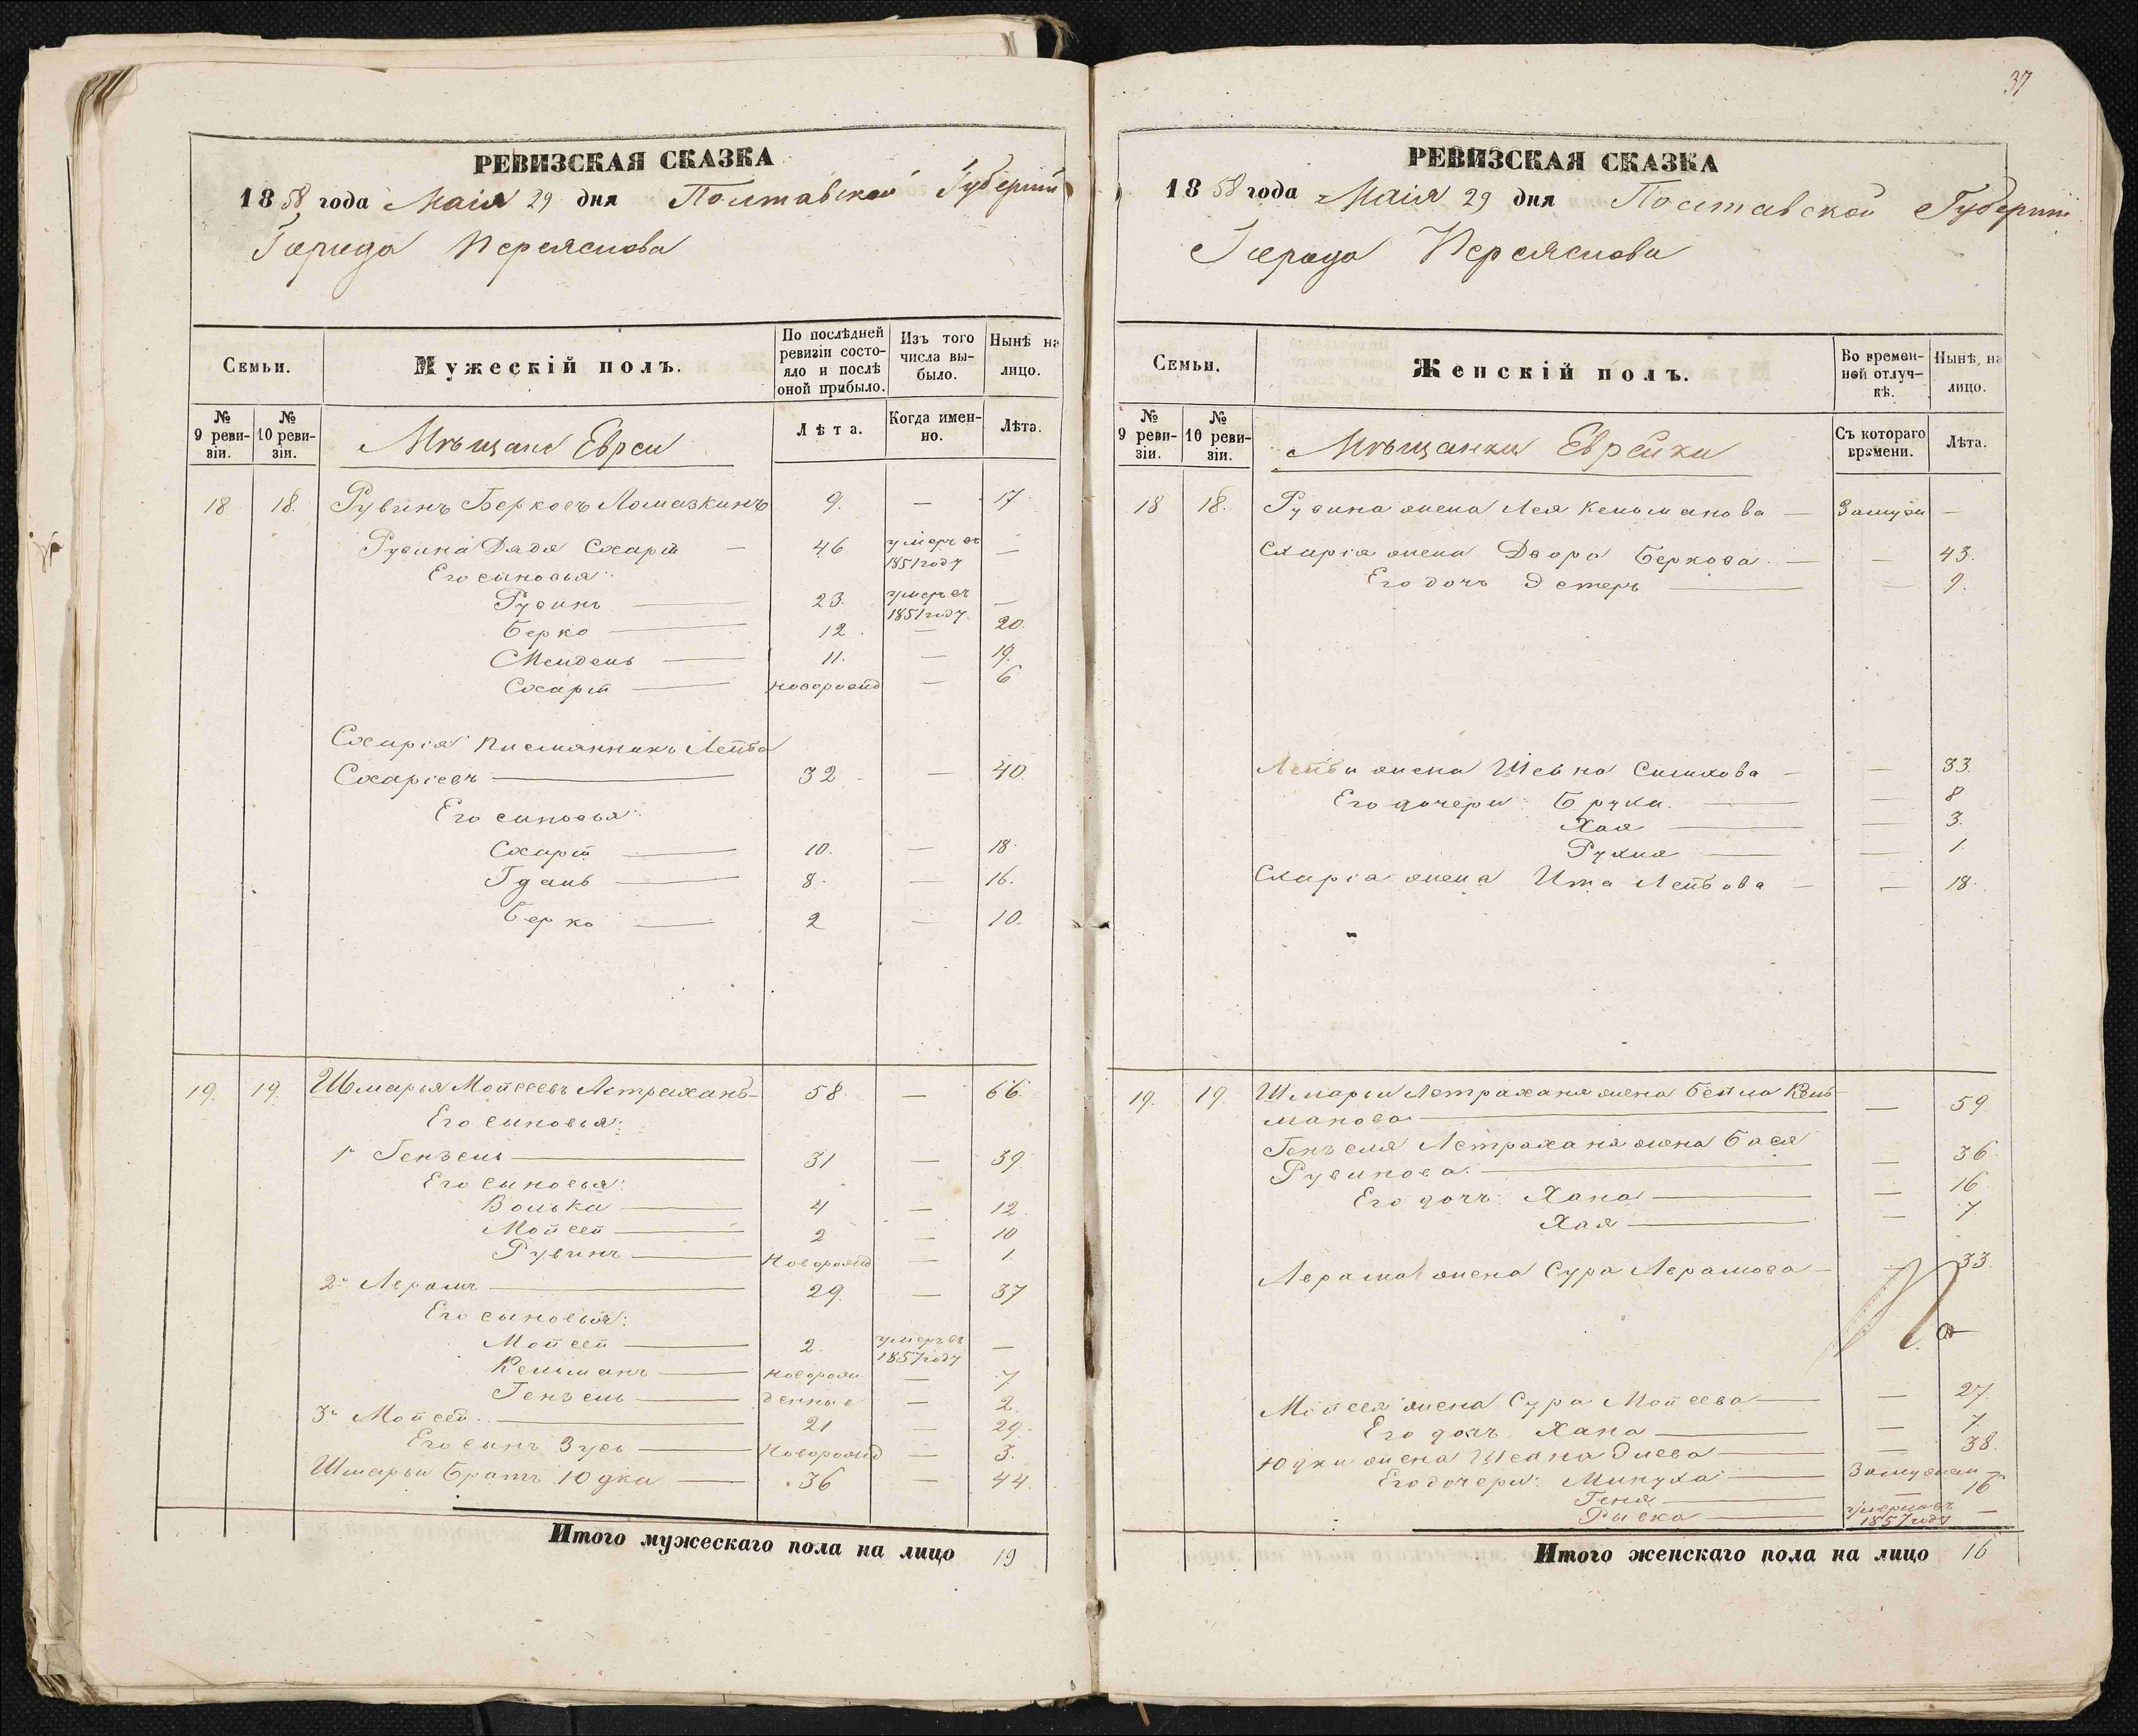 РЕВИЗСКАЯ СКАЗКА
1858 года Маія 29 дня Полтавской Губерніи
Города Переяслова
Семьи.
Мужескій полъ.
По послѣдней ревизіи состояло и послѣ оной прибыло.
Изъ того числа выбыло.
Нынѣ на лицо.
№ 9 ревизіи.
№ 10 ревизіи.
Мѣщане Евреи
Лѣта.
Когда именно.
Лѣта.
18 18. Рувинъ Берковъ Ломазкинъ 9. — 17
Рувина Дядя Схарій — 46 умеръ въ 1851 году —
Его сыновья:
Рувинъ — 23. умеръ въ 1851 году —
Берко — 12. — 20.
Мендель — 11. — 19.
Схарій — новорожд — 6
Схарія Лейба
Схаріевъ — 32 — 40.
Его сыновья:
Схарій — 10. — 18.
Гдаль — 8. — 16.
Берко — 2 — 10.
19. 19. Шмарья Мойсеевъ Астраханъ — 58. — 66.
Его сыновья:
1й Гензель — 31 — 39.
Его сыновья:
Волька — 4 — 12.
Мойсей — 2 — 10
Рувинъ — Новорожд — 1.
2й Аврамъ — 29. — 37
Его сыновья:
Мойсей — 2. умеръ въ 1857 году —
Кельманъ — новорож — 7.
Гензель — денные — 2.
3й Мойсей — 21 — 29.
Его сынъ Зусь — Новорожд — 3.
Шмарьи братъ Юдка — 36 — 44.
Итого мужескаго пола на лицо 19
37
РЕВИЗСКАЯ СКАЗКА
1858 года Маія 29 дня Полтавской Губерніи
Города Переяслова
Семьи.
Женскій полъ.
Во временной отлучкѣ.
Нынѣ на лицо.
№ 9 ревизіи.
№ 10 ревизіи.
Мѣщанки Еврейки
Съ котораго времени.
Лѣта.
18 18. Рувина жена Лея Кельманова — Замужи —
Схарія жена Двора Беркова. — — 43.
Его дочь Эстеръ — — 9.
Лейбы жена Шейна — — 33.
Его дочери: Бруха. — — 8
Хая — — 3.
Рухля — — 1.
Схарія жена Ита Лейбова — — 18.
19. 19. Шмарьи Астраханя жена Бейла Кель-
манова — — 59
Гензеля Астраханя жена Бася
Рувинова. — — 36
Его дочь: Хана — — 16
Хая — — 7
Аврама жена Сура Аврамова — — 33.
Мойсея жена Сура Мойсеева — — 27.
Его дочь Хана — — 7.
Юдки жена Шейна Элева — — 38.
Его дочери: Минуха — Замужем —
Геня — — 16
Рывка — умерла въ 1857 году —
Итого женскаго пола на лицо 16